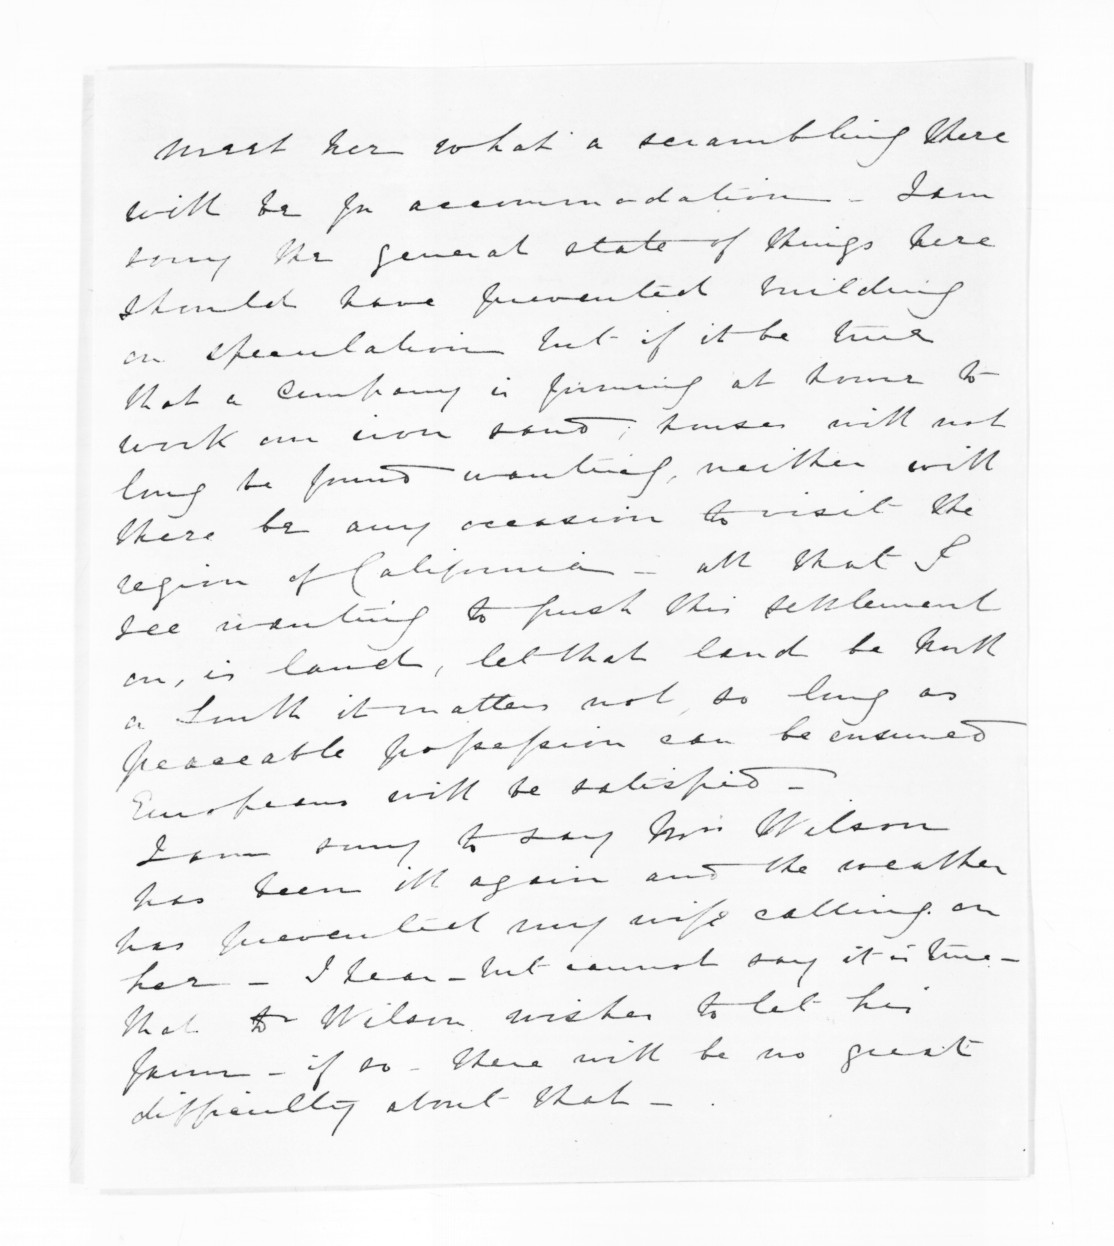 meet her what a scrambling there
will be for accommodation - I am
sorry the general state of things here
should have prevented building
on speculation but if it be true
that a Company is forming at home to
work our iron sand; houses will not
long be found wanting, neither will
there be any occasion to visit the
region of California - all that I
see wanting to push this settlement
on, is land, let that land be North
or South it matters not, so long as
peaceable possession can be ensured
Europeans will be satisfied -
I am sorry to say Mrs Wilson
has been ill again and the weather
has prevented my wife calling on
her - I hear - but cannot say it is true -
that Dr Wilson wishes to let his
farm - if so - there will be no great
difficulty about that -